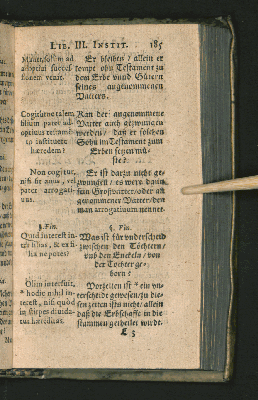 LIB. III. INSTIT. 185
Manet, solum ad
adoptivi succes
sionem venit.
Er bleibet / allein er
kompt ohn Testament zu
dem Erbe vnnd Gütern
seines angenommenen
Vatters.
Cogiturne talem
filium pater ad-
optivus testamē-
to instituere
hæredem?
Kan der angenommene
Vatter auch gezwungen
werden / daß er solchen
Sohn im Testament zum
Erben setzen mü-
ste?
Non cogitur,
nisi sit avus, vel
pater arrogati-
vus.
Er ist darzu nicht ge-
zwungen / es were dann
ein Großvatter / oder an-
genommener Vatter / den
man arrogativum nennet.
§. Fin.
Quid interest in-
ter filias, & ex fi-
lia nepotes?
§. Fin.
Was ist für vnderscheid
zwischen den Töchtern /
vnd den Enckeln / von
der Tochter ge-
born?
Olim interfuit,
* hodie nihil in-
terest, nisi quòd
in stirpes dividā-
tur hæreditas.
Vorzeiten ist * ein vn-
terscheidt gewesen / zu die-
sen zeiten ists nicht / allein
daß die Erbschafft in die
stammen getheilet wirdt.